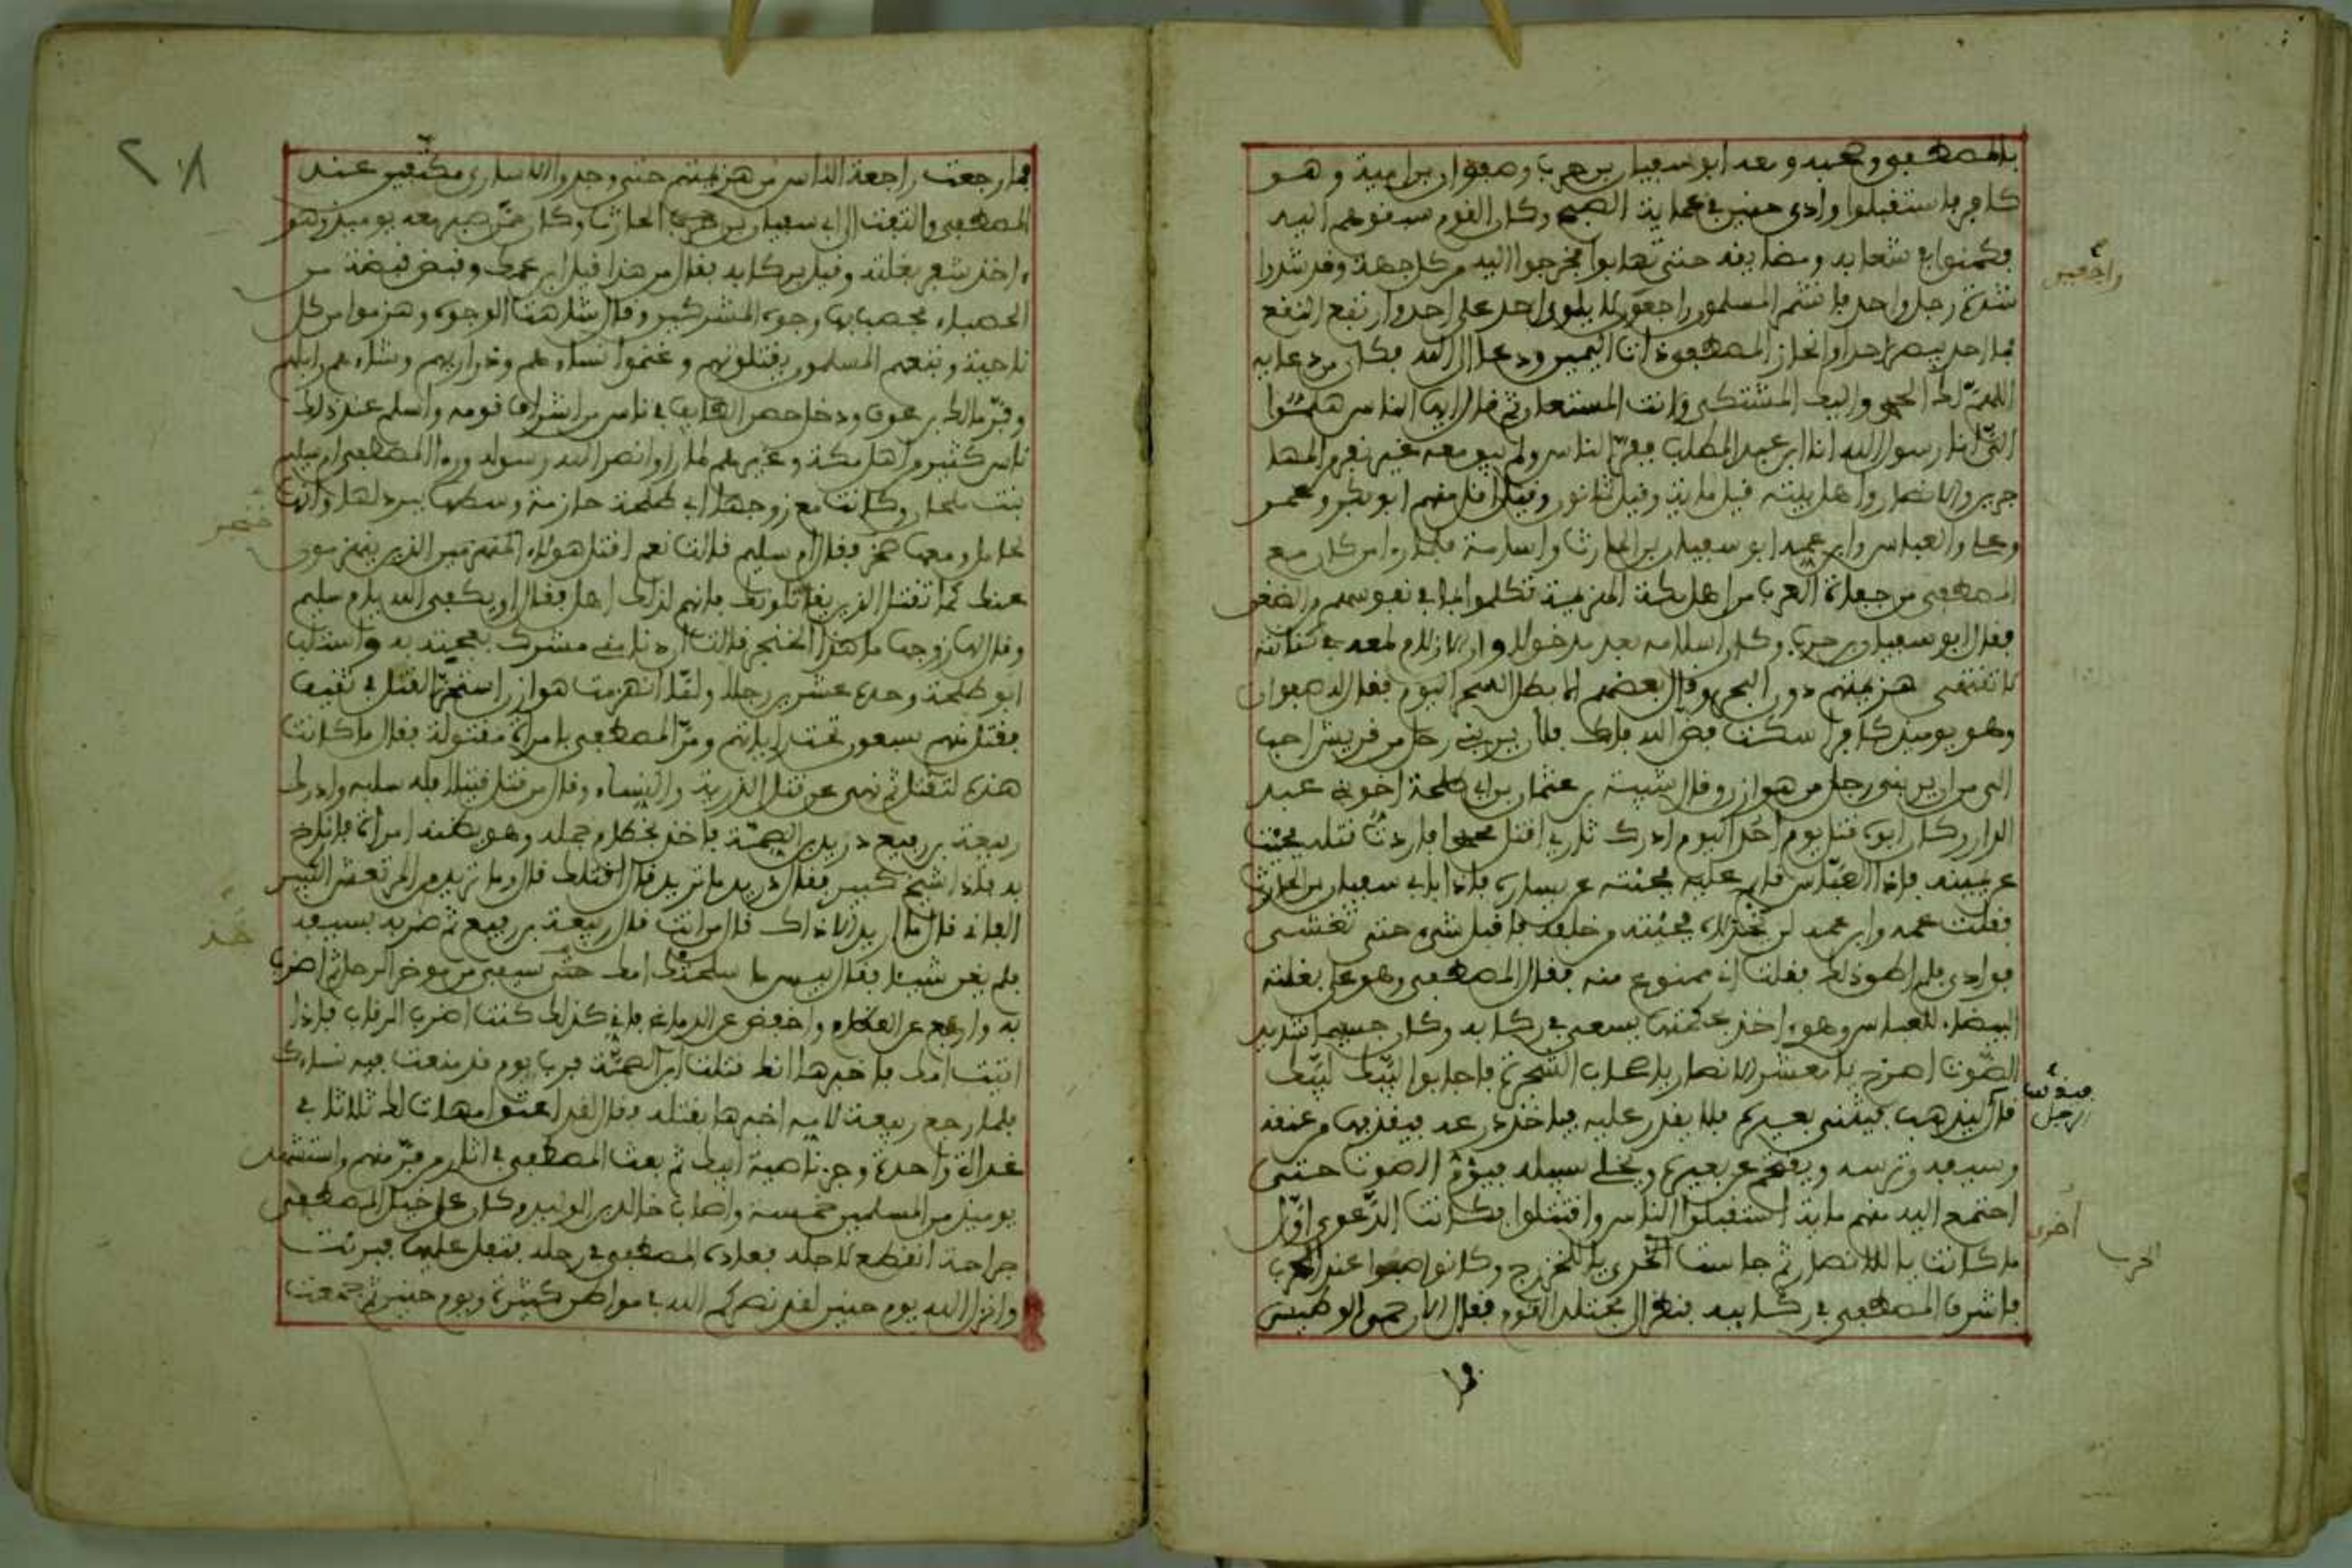 بالمصطفى وصحبه ومعه ابو سفيان بن حرب وصفوان بن امية وهو
كافر فاستقبلوا وادى حنين فى عماية الصبح وكان القوم سبقوهم اليه
فكمنوا فى شعابه ومضايقه حتى تهابوا فخرجوا اليه من كل جهة وقد شدوا
شدة رجل واحد فانشمر المسلمون راجعون لا يلوى احد على احد وارتفع النقع
فما احد يبصر احدا وانحاز المصطفى ذات اليمين ودعا الى الله فكان من دعايه
اللهم لك الحمد واليك المشتكى وانت المستعان ثم قال ايها الناس هلموا
الىّ انا رسول الله انا ابن عبد المطلب ففرّ الناس ولم يبق معه غير نفر من المها
جرين والانصار واهل بيته قيل ماية وقيل ثمانون وقيل اقل منهم ابو بكر وعمر
وعلى والعباس وابن عمه ابو سفيان بن الحارث واسامة فلما راى من كان مع
المصطفى من جفاة العرب من اهل مكة الهزيمة تكلموا بما فى نفوسهم من الضغن
فقال ابو سفيان بن حرب وكان اسلامه بعد مدخولا وان الازلام لمعه فى كنانته
لا تنتهى هزيمتهم دون البحر وقال بعضهم الا بطل السحر اليوم فقال له صفوان
وهو يوميذ كافر اسكت فض الله فاك فلأن يربنى رجل من قريش احب
الى من ان يربنى رجل من هوازن وقال شيبة بن عثمان بن ابى طلحة اخو بنى عبد
الدار وكان ابوه قتل يوم أُحُد اليوم ادرك ثارى اقتل محمدا فاردتُ قتله فجئت
عن يمينه فاذا العبّاس قايم عليه فجئته عن يساره فاذا بابى سفيان بن الحارث
فقلت عمه وابن عمه لن يخذلاه فجئته من خلفه فاقبل شىء حتى تغشى
فوادى فلم اطق ذلك فعلمت انه ممنوع منه فقال المصطفى وهو على بغلته
البيضاء للعباس وهو اخذ بحكمتها يسعى فى ركابه وكان جسيما شديد
الصّوت اصرخ يا معشر الانصار يا اصحاب الشجرة فاجابوا لبّيك لبّيك
قال فيذهب فيثنى بعيره فلا يقدر عليه فياخذ درعه فيقذفها من عنقه
وسيفه وترسه ويقتحم عن بعيره ويخلى سبيله فيؤمّ الصوت حتى
اجتمع اليه منهم ماية استقبلوا الناس واقتتلوا فكانت الدّعوى اوّل
ما كانت يا للانصار ثم خلصت اخرى يا للخزرج وكانوا صبرا عند الحرب
فاشرف المصطفى فى ركابيه فنظر الى مجتلد القوم فقال الان حمى الوطيس
راجعين
فينفلت
الرجل
أخرى
الحرب
فما
٢٠٨
فما رجعت راجعة الناس من هزيمتهم حتى وجدوا الاسارى مكتّفين عند
المصطفى والتفت الى ابى سفيان بن الحارث وكان ممّن صبر معه يوميذ وهو
ءاخذ بثفر بغلته وقيل بركابه فقال من هذا قيل ابن عمك وقبض قبضة من
الحصباء فحصب بها وجوه المشركين وقال شاهت الوجوه وهزموا من كل
ناحية وتبعهم المسلمون يقتلونهم وغنموا نساءهم وذراريهم وشاءهم وابلهم
وفرّ مالك بن عوف ودخل حصن الطايف فى ناس من اشراف قومه واسلم عند ذلك
ناس كثير من اهل مكة وغيرهم لما راوا نصر الله رسوله وراى المصطفى ام سليم
بنت ملحان وكانت مع زوجها ابى طلحة حازمة وسطها ببرد لها وانها
لحامل ومعها خنجر فقال ام سليم قالت نعم اقتل هولاء المنهزمين الذين ينهزمون
عنك كما تقتل الذين يقاتلونك فانهم لذلك اهل فقال او يكفى الله يا ام سليم
وقال لها زوجها ما هذا الخنجر قالت ان دنا منى مشرك بعجته به واستلب
ابو طلحة وحده عشرين رجلا ولمّا انهزمت هوازن استحرّ القتل فى ثقيف
فقتل منهم سبعون تحت رايتهم ومرّ المصطفى بامراة مقتولة فقال ما كانت
هذه لتقتل ثم نهى عن قتل الذرية والنساء وقال من قتل قتيلا فله سلبه وادرك
ربيعة بن رفيع دريد بن الصمّة فاخذ بخطام جمله وهو يظنه امراة فاناخ
به فاذا شيخ كبير فقال دريد ما تريد قال اقتلك قال وما تريد من المرتعش الكبير
الفانى قال ما اريد الا ذاك قال من انت قال ربيعة بن رفيع ثم ضربه بسيفه
فلم يغن شيئا فقال بيس ما سلحتك امك خذ سيفى من موخر الرحل ثم اضرب
به وارفع عن العظام واخفض عن الدماغ فانى كذلك كنت اضرب الرقاب فاذا
اتيت امك فاخبرها انك قتلت ابن الصمّة فرب يوم قد منعت فيه نساءك
فلما رجع ربيعة لامه اخبرها بقتله فقال لقد اعتق امهات لك ثلاثا فى
غداة واحدة وجز ناصية ابيك ثم بعث المصطفى فى اثار من فرّ منهم واستشهد
يوميذ من المسلمين خمسة واصاب خالد بن الوليد وكان على خيل المصطفى
جراحة انقطع لاجله فعاده المصطفى فى رحله فتفل عليها فبرئت
وانزل الله يوم حنين لقد نصركم الله فى مواطن كثيرة ويوم حنين ثم جمعت
خنجر
خذ